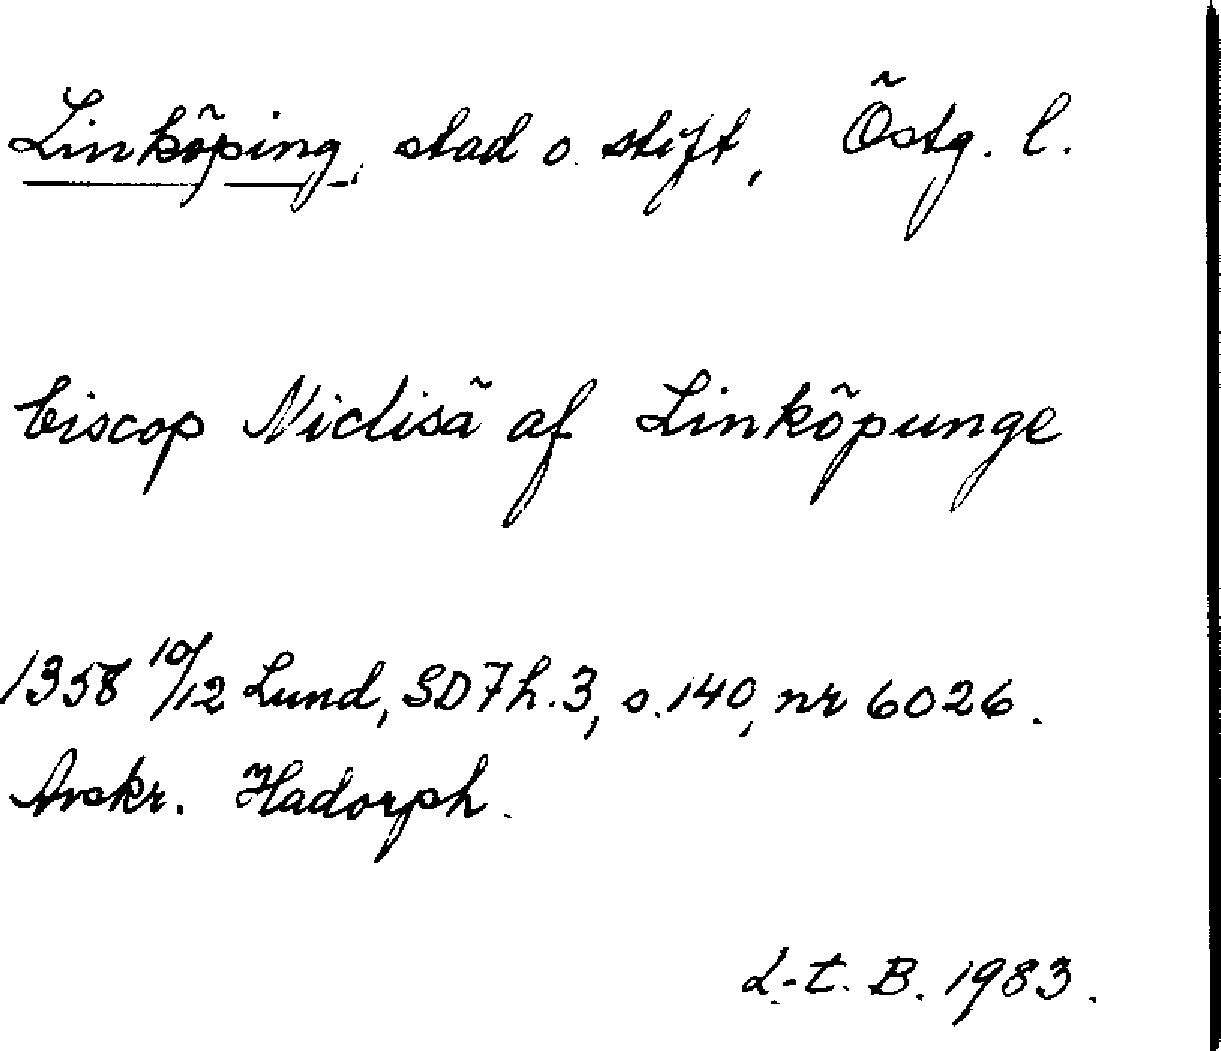 Linköping, stad o. stift, Östg. l.
biscop Niclisä af Linköpunge
1358 10/12 Lund, SD 7 h. 3, s. 140, nr 6026.
Avskr. Hadorph.
L-t. B. 1983.